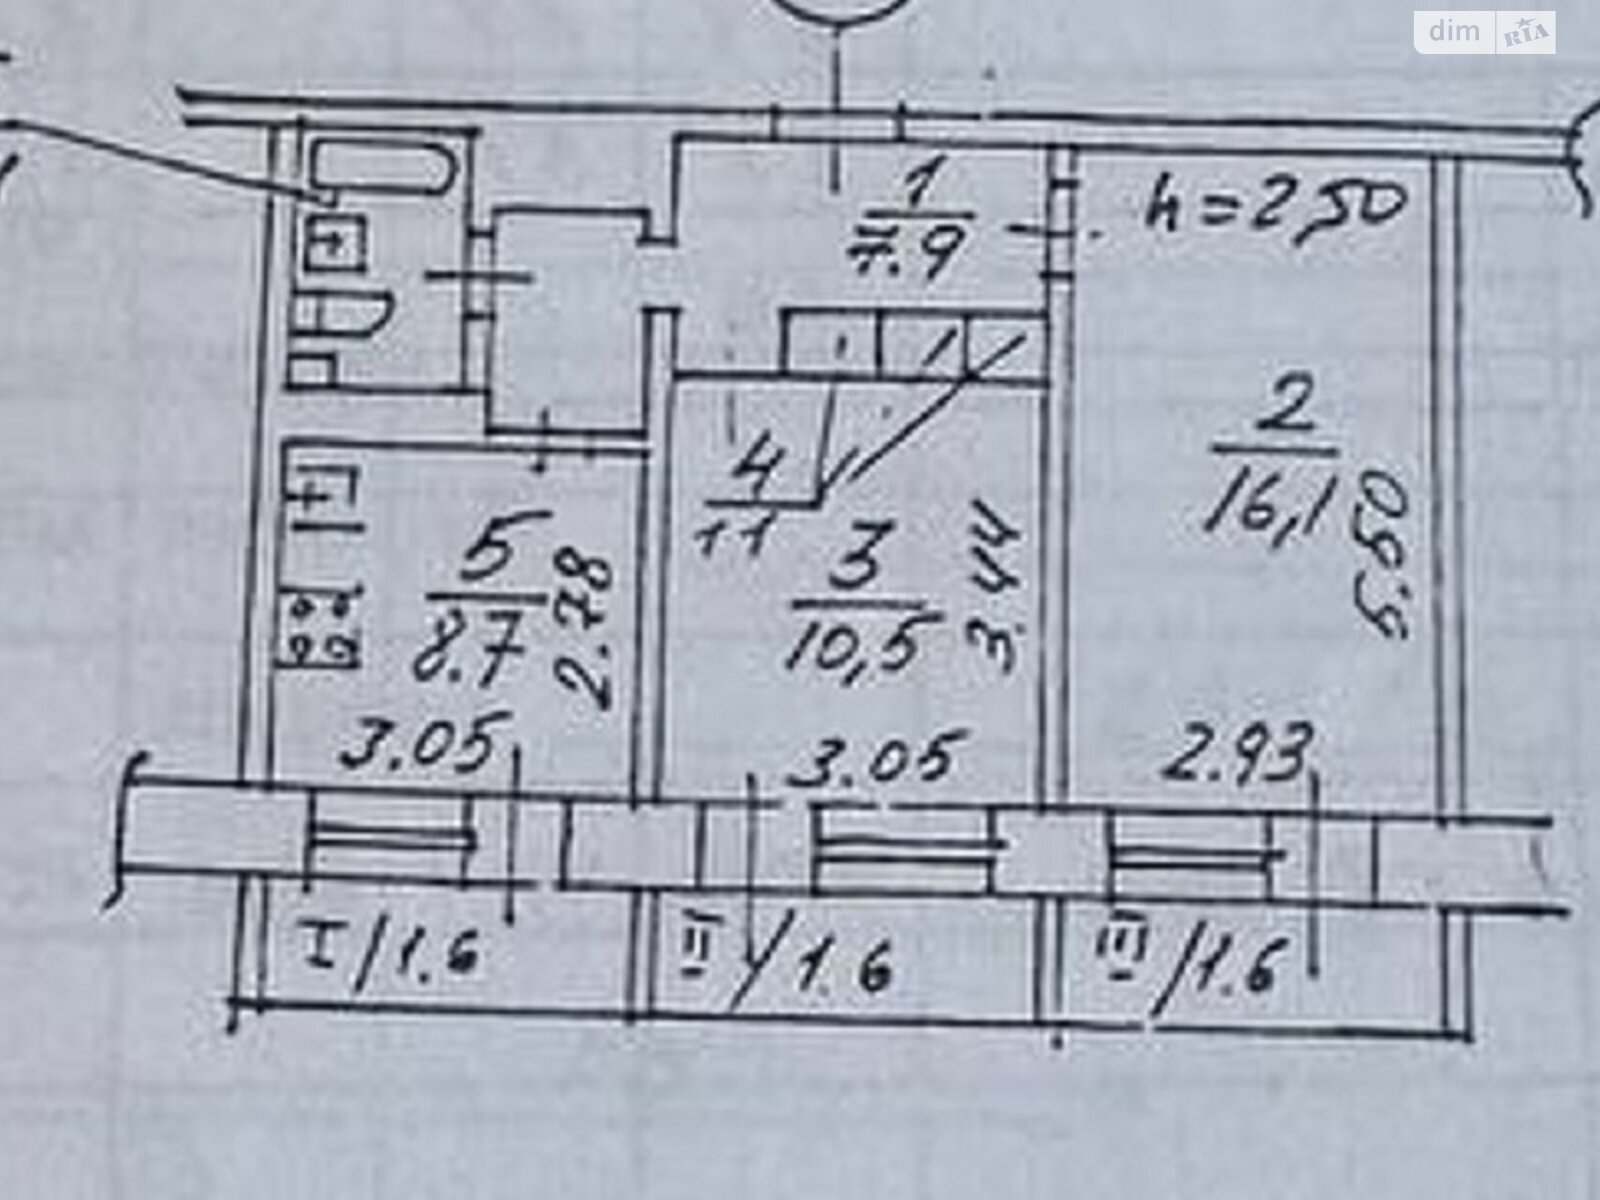 dim RIA
1
7.9
h=2,50
2
16,1
5.50
4
11
3
10,5
3.44
5
8.7
2.78
3.05
3.05
2.93
I/1.6
II/1.6
III/1.6